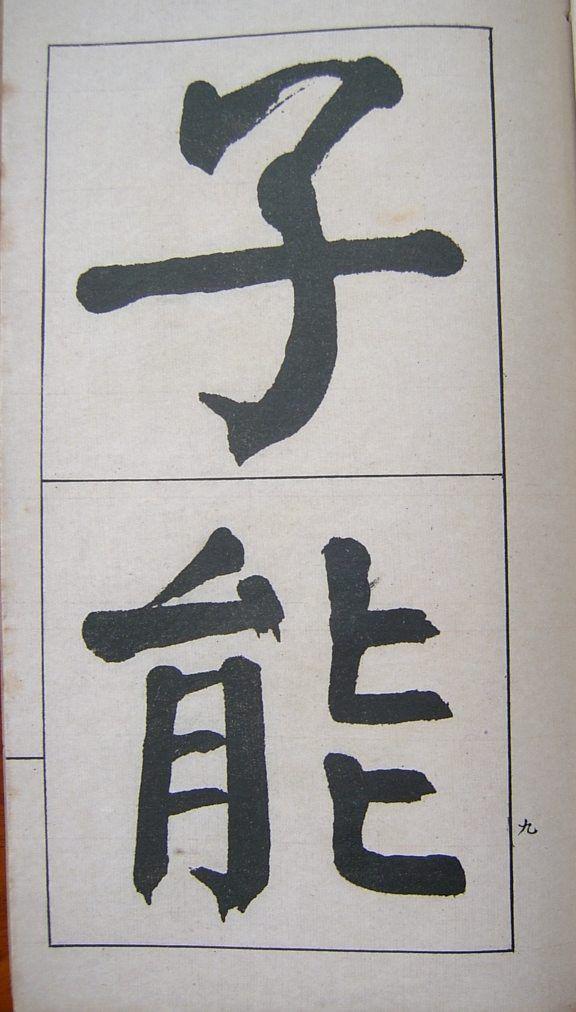 子
能
九